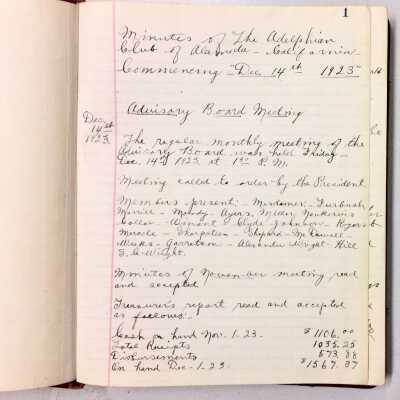 1
Minutes of The Adelphian
Club of Alameda - California
Commencing "Dec. 14th 1923"
Advisory Board Meeting
Dec.
14th
1923
The regular monthly meeting of the
Advisory Board was held Friday -
Dec. 14th 1923 at 1 P.M.
Meeting called to order by the President
Members present: - Mesdames - Furbush
Merrill - Moody - Ayers, Miller,
Johnson - Rogers
Miracle - Sharpsteen - Shepard - McDowell
Meeks - Garretson - Alexander Wright - Hill
Wright.
Minutes of November meeting read
and accepted
Treasurer's report read and accepted
as follows: -
Cash on hand Nov. 1 - 23. $1106.00
Total Receipts 1035.25
Disbursements 573.88
On hand Dec - 1 - 23. $1567.37